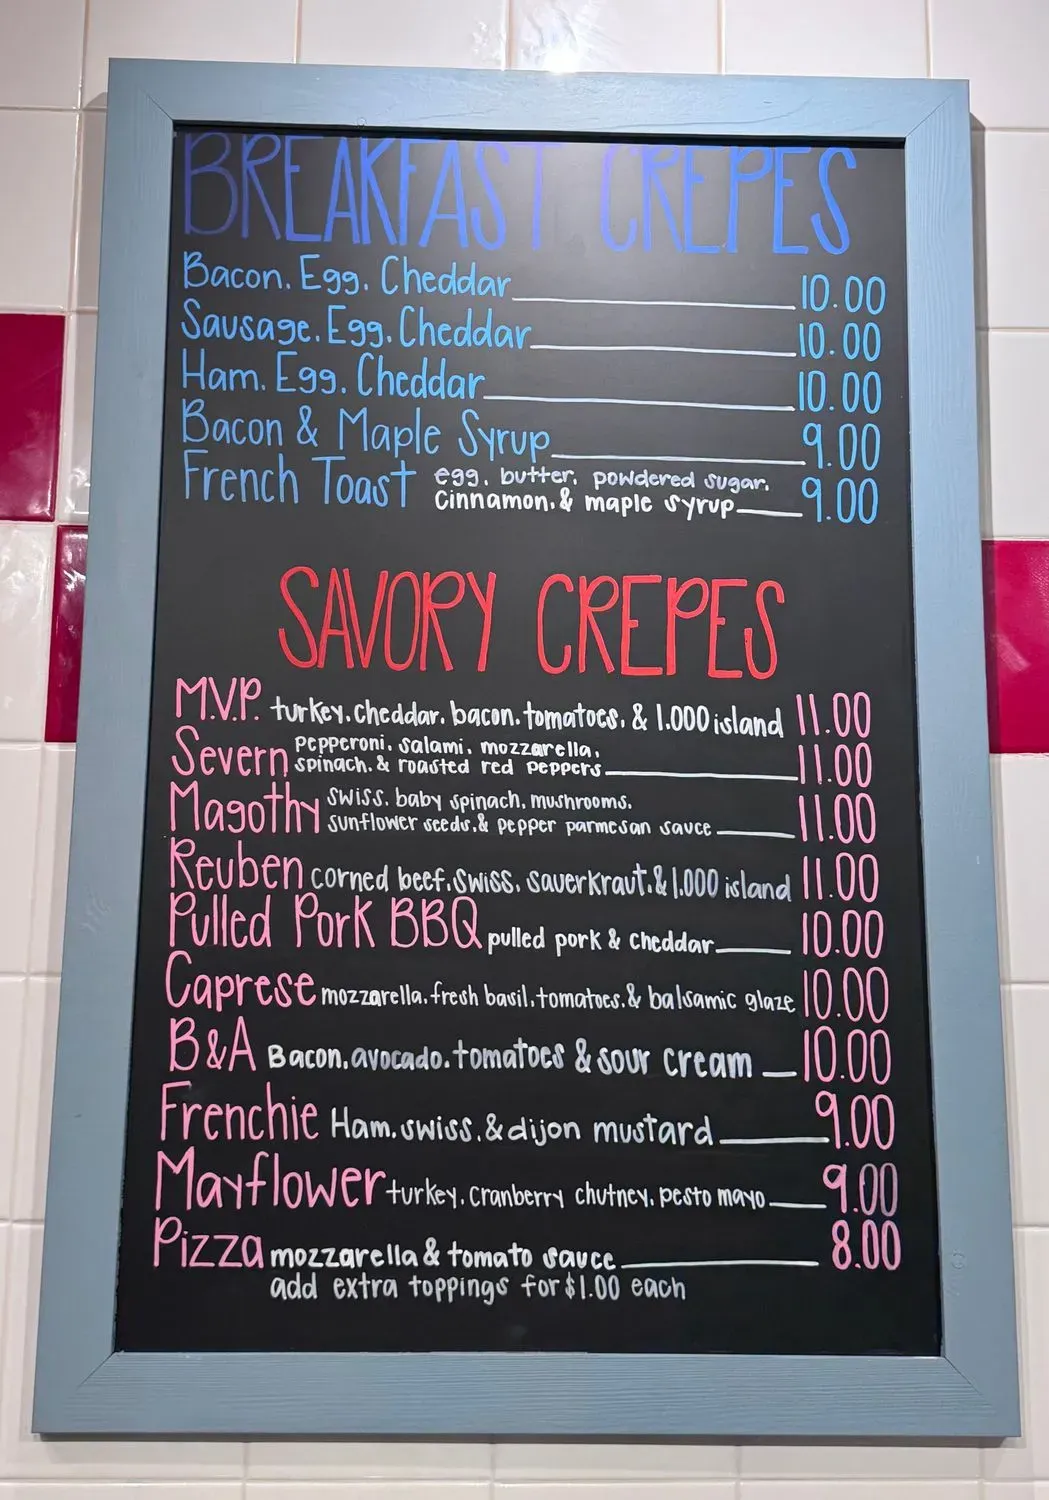 BREAKFAST CREPES
Bacon, Egg, Cheddar 10.00
Sausage, Egg, Cheddar 10.00
Ham, Egg, Cheddar 10.00
Bacon & Maple Syrup 9.00
French Toast egg, butter, powdered sugar,
cinnamon, & maple syrup 9.00
SAVORY CREPES
M.V.P. turkey, cheddar, bacon, tomatoes, & 1,000 island 11.00
Severn pepperoni, salami, mozzarella,
spinach, & roasted red peppers 11.00
Magothy swiss, baby spinach, mushrooms,
sunflower seeds, & pepper parmesan sauce 11.00
Reuben corned beef, swiss, sauerkraut, & 1,000 island 11.00
Pulled Pork BBQ pulled pork & cheddar 10.00
Caprese mozzarella, fresh basil, tomatoes, & balsamic glaze 10.00
B&A Bacon, avocado, tomatoes & sour cream 10.00
Frenchie Ham, swiss, & dijon mustard 9.00
Mayflower turkey, cranberry chutney, pesto mayo 9.00
Pizza mozzarella & tomato sauce 8.00
add extra toppings for $1.00 each